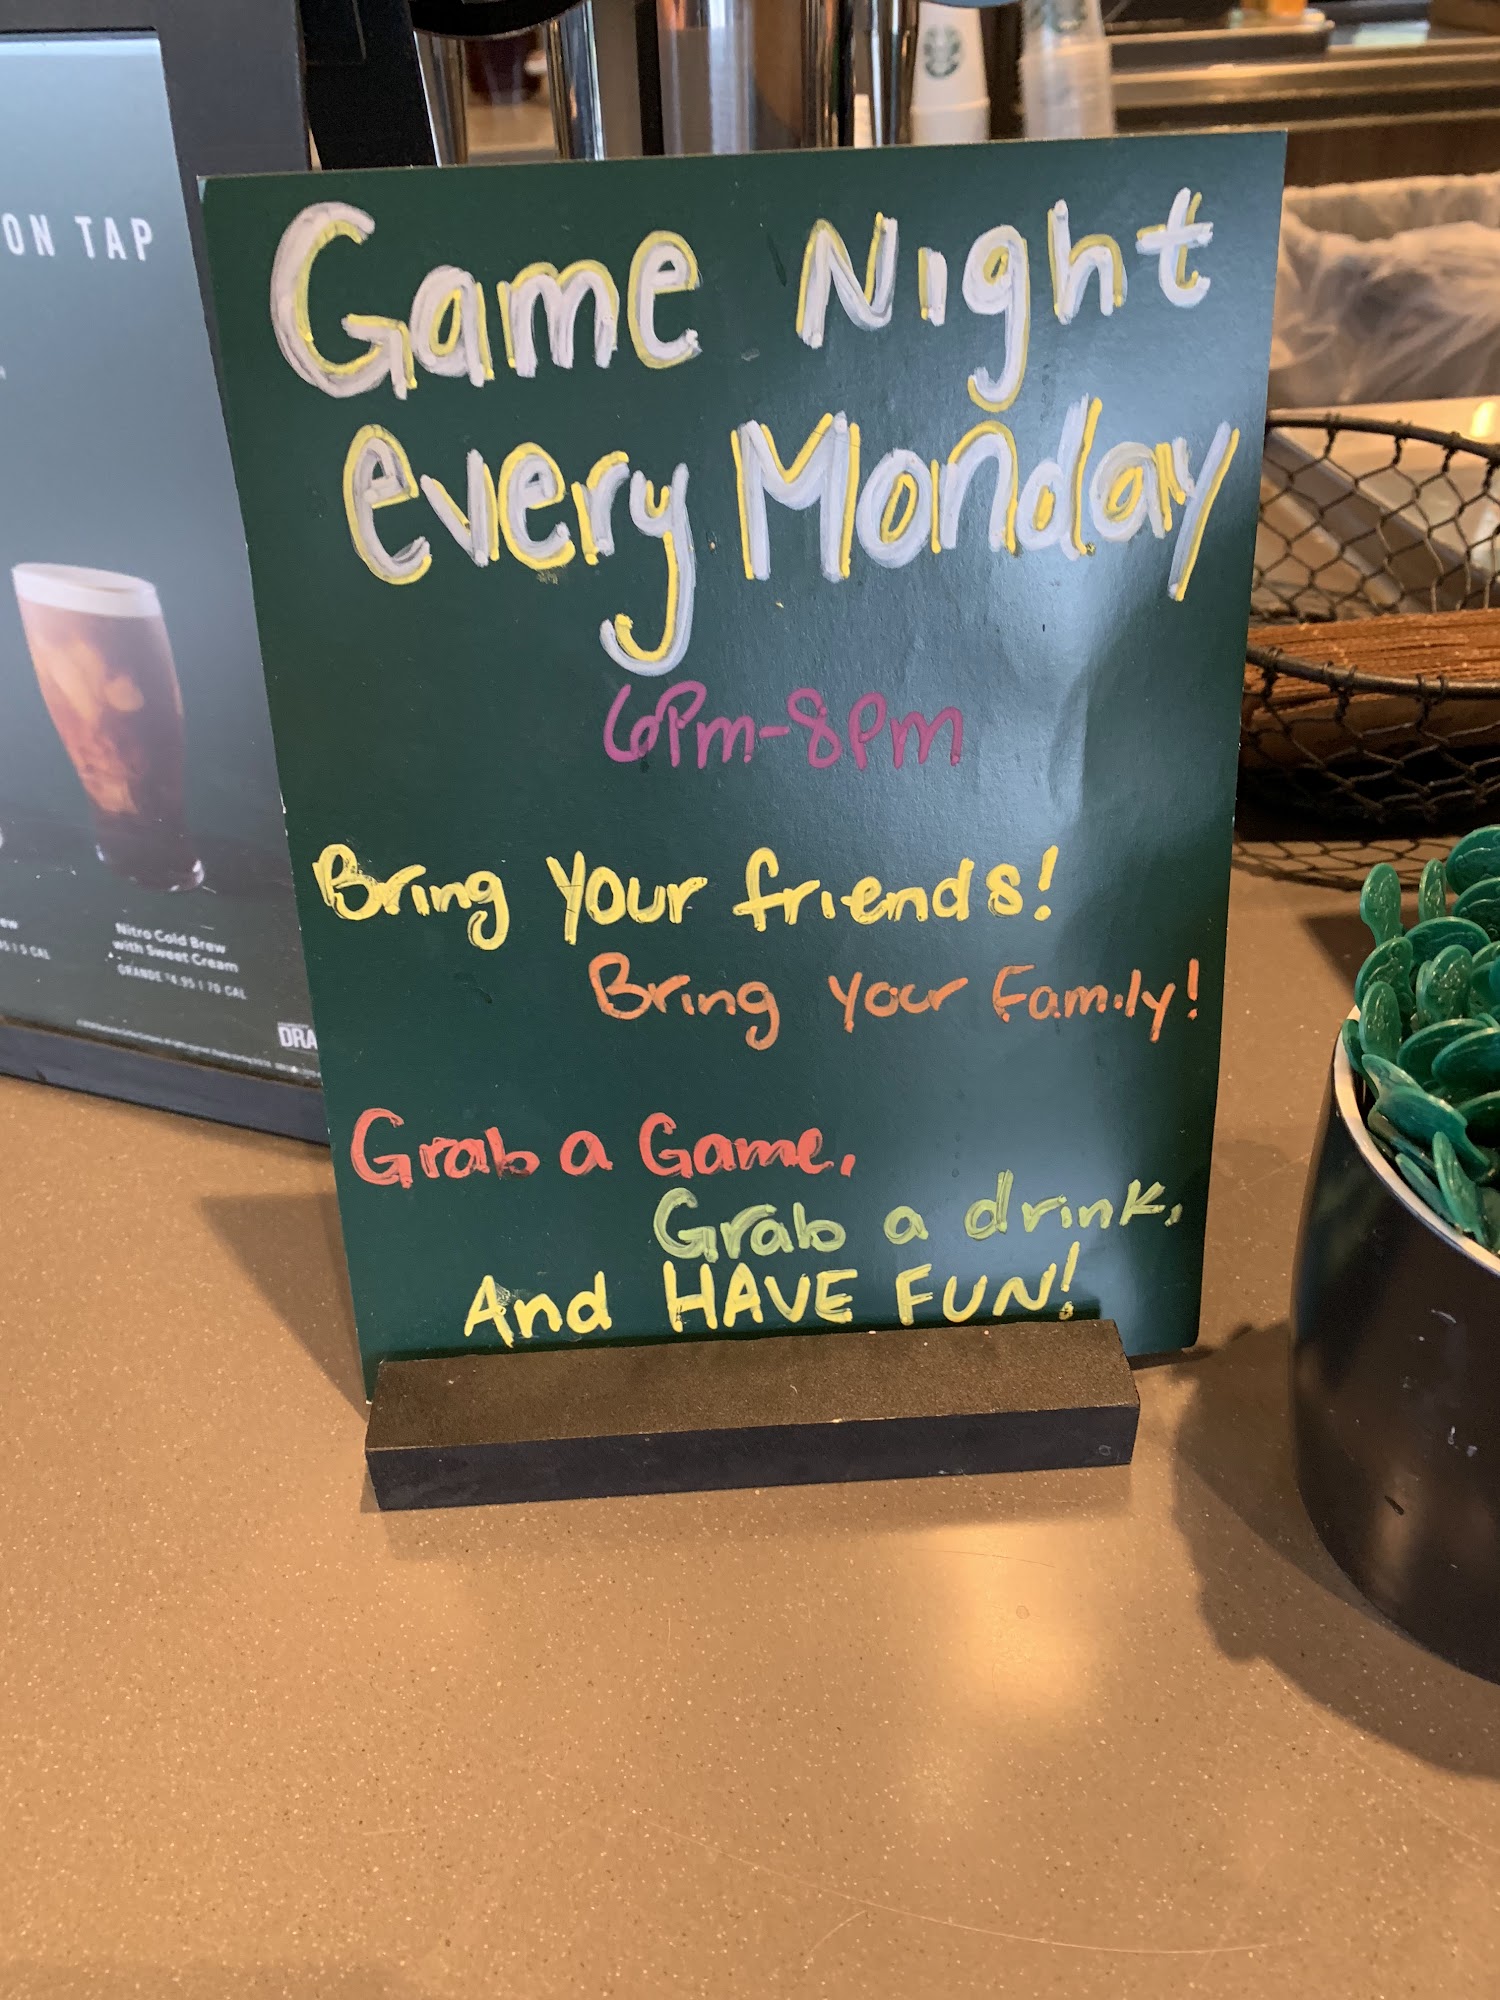 ON TAP
Game Night
every Monday
6pm-8pm
Bring your friends!
Bring your Family!
Grab a Game,
Grab a drink,
And HAVE FUN!
Nitro Cold Brew
with Sweet Cream
GRANDE $4.95 | 70 CAL
5 CAL
DRA